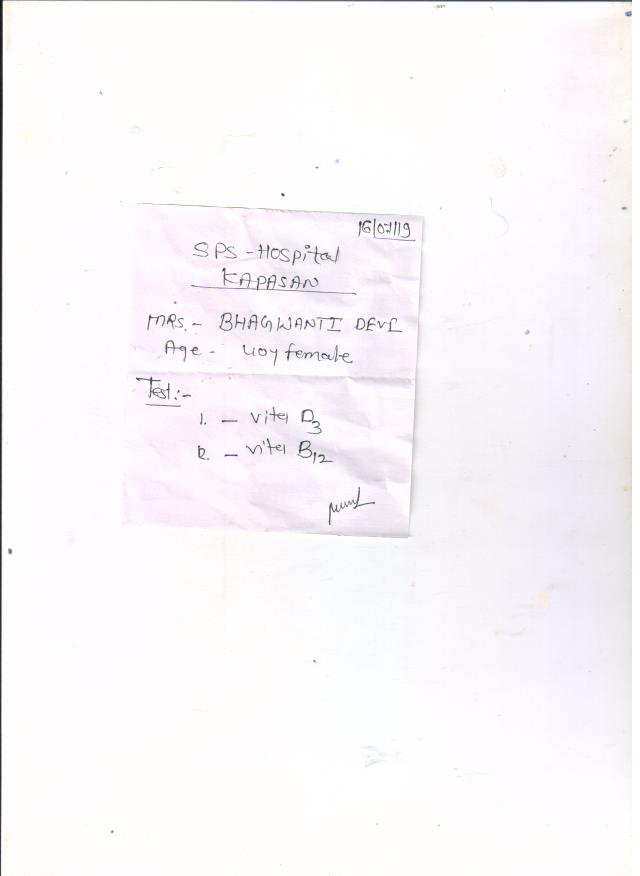 16/07/19
SPS - Hospital
KAPASAN
MRS. - BHAGWANTI DEVI
Age - 40y female
Test :-
1. - vita D3
2. - vita B12